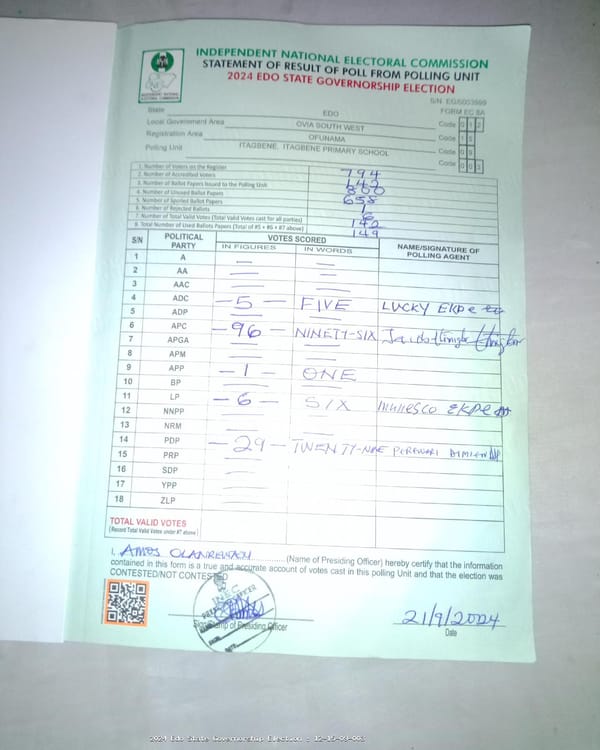 INDEPENDENT NATIONAL ELECTORAL COMMISSION
STATEMENT OF RESULT OF POLL FROM POLLING UNIT
2024 EDO STATE GOVERNORSHIP ELECTION
FORM EC 8A
State EDO
Local Government Area OVIA SOUTH WEST Code 1 2
Registration Area OFUNAMA Code
Polling Unit ITAGBENE, ITAGBENE PRIMARY SCHOOL Code
1. Number of Voters on the Register 794
2. Number of Accredited Voters
3. Number of Ballot Papers Issued to the Polling Unit 800
4. Number of Unused Ballot Papers 658
5. Number of Spoiled Ballot Papers 1
6. Number of Rejected Ballots
7. Number of Total Valid Votes (Total Valid Votes cast for all parties)
8. Total Number of Used Ballots Papers (Total of #5 + #6 + #7 above) 149
S/N POLITICAL PARTY VOTES SCORED NAME/SIGNATURE OF POLLING AGENT
IN FIGURES IN WORDS
1 A
2 AA
3 AAC
4 ADC - 5 - FIVE LUCKY
5 ADP
6 APC - 96 - NINETY-SIX
7 APGA
8 APM
9 APP - 1 - ONE
10 BP
11 LP - 6 - SIX
12 NNPP
13 NRM
14 PDP - 29 -
15 PRP
16 SDP
17 YPP
18 ZLP
TOTAL VALID VOTES
(Record Total Valid Votes under #7 above)
I, AMOS (Name of Presiding Officer) hereby certify that the information
contained in this form is a true and accurate account of votes cast in this polling Unit and that the election was
CONTESTED/NOT CONTESTED
INEC
Presiding Officer
21/9/2024
Date
2024 Edo State Governorship Election : 12-15-09-003